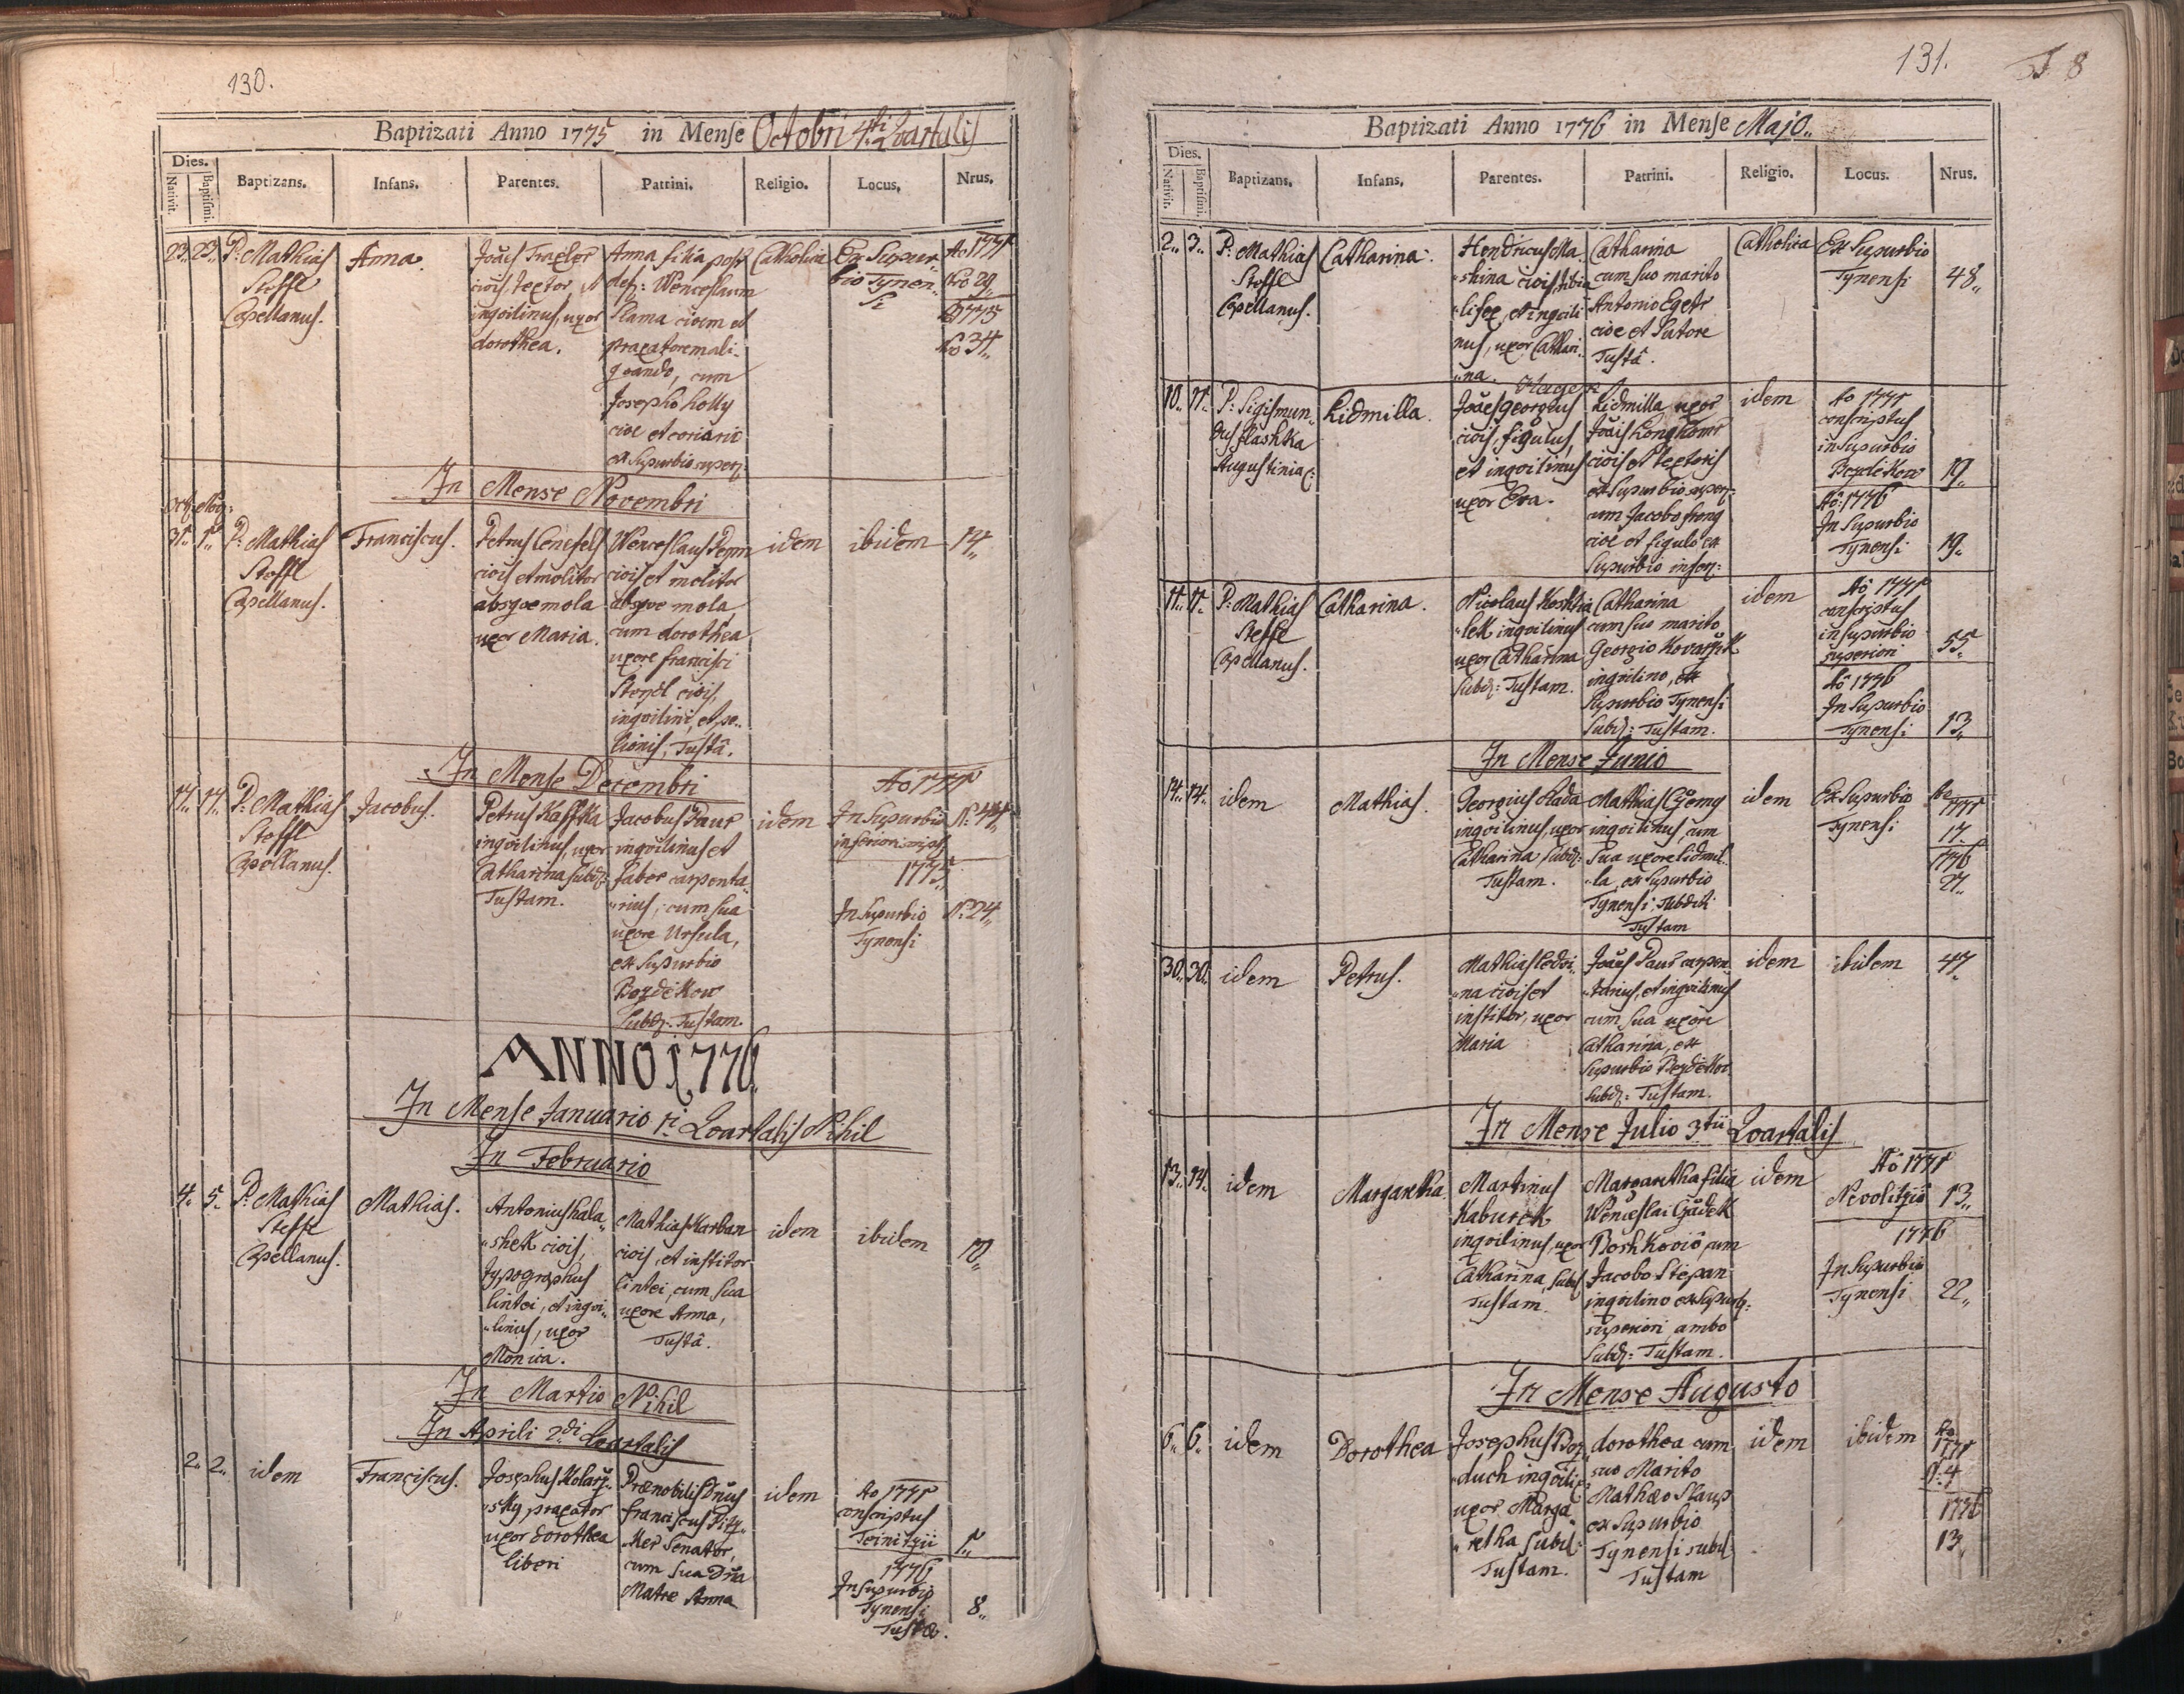 130.
Baptizati Anno 1775 in Mense Octobri 4ti Qvartalis
Dies.
Nativit.
Baptismi.
Baptizans.
Infans.
Parentes.
Patrini.
Religio.
Locus.
Nrus.
23. 23. P: Mathias
Steffl
Capellanus.
Anna.
civis, textor, et
inqvilinus, uxor
dorothea.
Anna filia post
def: Wenceslaum
Slama civem et
cum
Josepho holly
cive et coriario
ex Supurbio super:
Catholica
Ex Supur
bio Tynen
si
Ao 1771
No 29
1775
No 34
In Mense Novembri
31. 1. P: Mathias
Steffl
Capellanus.
Franciscus.
Petrus
civis et molitor
absqve mola
uxor Maria.
Wenceslaus
civis et molitor
absqve mola
cum dorothea
uxore francisci
civis,
inqvilini, et
Tustâ.
idem
ibidem
14
In Mense Decembri
17. 17. P: Mathias
Steffl
Capellanus.
Jacobus.
Petrus Kaffka
inqvilinus, uxor
Catharina subd:
Tustam.
Jacobus Paur
inqvilinus et
faber carpenta
rius, cum sua
uxore Ursula,
ex Supurbio
Bozdiekow
Subd: Tustam.
idem
Ao 1771
In Supurbio
inferiori
1775
In Supurbio
Tynensi
N: 24
ANNO 1776
In Mense Januario 1i Qvartalis Nihil
In Februario
4. 5. P: Mathias
Steffl
Capellanus.
Mathias.
Antonius hala
shek civis,
typographus
lintei, et inqvi
linus, uxor
Monica.
Mathias Karban
civis, et institor
lintei, cum sua
uxore Anna,
Tustâ.
idem
ibidem
In Martio Nihil
In Aprili 2di Qvartalis
2. 2. idem
Franciscus.
Josephus Kolarz
sky praxator
uxor dorothea
liberi
Prænobilis Dnus
franciscus
Senator,
cum sua Dna
Matre Anna
idem
Ao 1771
conscriptus
1776
In Supurbio
Tynensi
8
131.
8
Baptizati Anno 1776 in Mense Majo
Dies.
Nativit.
Baptismi.
Baptizans.
Infans.
Parentes.
Patrini.
Religio.
Locus.
Nrus.
2. 3. P: Mathias
Steffl
Capellanus.
Catharina.
Hendricus Ma
shina civis, tibia
lifex, et inqvili
nus, uxor Cathari
na.
Catharina
cum suo marito
Antonio
cive et Sutore
Tustâ.
Catholica
Ex Supurbio
Tynensi
48
10. 11. P: Sigismun
dus flashka
Augustinia:
Lidmilla.
Joães georgius
civis, figulus,
et inqvilinus
uxor Eva.
Lidmilla uxor
Joãis
civis et textoris
ex Supurbio super:
cum Jacobo
cive et figulo ex
Supurbio infer:
idem
Ao 1771
conscriptus
in Supurbio
Bozdiekow
19
Ao: 1776
In Supurbio
Tynensi
19
P: Mathias
Steffl
Capellanus.
Catharina.
Nicolaus
lek inqvilinus
uxor Catharina
Subd: Tustam.
Catharina
cum suo marito
Georgio Kovarzik
inqvilino, ex
Supurbio Tynensi
Subd: Tustam.
idem
Ao 1771
conscriptus
in Supurbio
superiori
55
Ao 1776
In Supurbio
Tynensi
13
In Mense Junio
14. 14. idem
Mathias.
Georgius Lada
inqvilinus, uxor
Catharina subd:
Tustam.
Mathias
inqvilinus, cum
Sua uxore lidmil
la, ex Supurbio
Tynensi, subditi
Tustam
idem
Ex Supurbio
Tynensi
1771
17
1776
30. 30. idem
Petrus.
Mathias ledvi
na civis et
institor, uxor
Maria
Joães Paur carpen
tarius, et inqvilinus
cum sua uxore
Catharina, ex
Supurbio
Subd: Tustam.
idem
ibidem
47
In Mense Julio 3tii Qvartalis
13. 14. idem
Margaretha.
Martinus
Kaburek
inqvilinus, uxor
Catharina, subd
Tustam.
Margaretha filia
Wenceslai
cum
Jacobo Stiepan
inqvilino ex Supurb:
superiori ambo
Subd: Tustam.
idem
Ao 1771
13
1776
In Supurbio
Tynensi
22
In Mense Augusto
6. 6. idem
Dorothea
Josephus
duch inqvili
uxor Marga
retha subd:
Tustam.
dorothea cum
suo Marito
Mathæo
ex Supurbio
Tynensi subd:
Tustam
idem
ibidem
Ao
1771
N: 4
1776
13